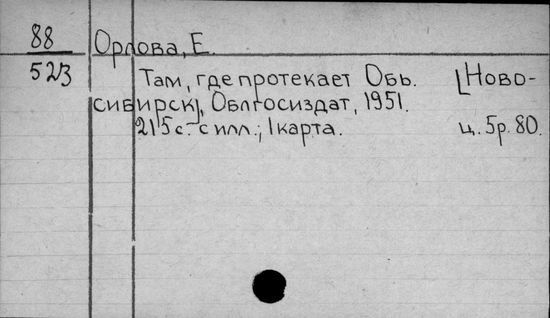 88 Орлова, Е.
523 Там, где протекает Обь. [Ново-
сибирск], Облгосиздат, 1951.
215 с. с илл.; 1 карта. ц. 5р. 80.